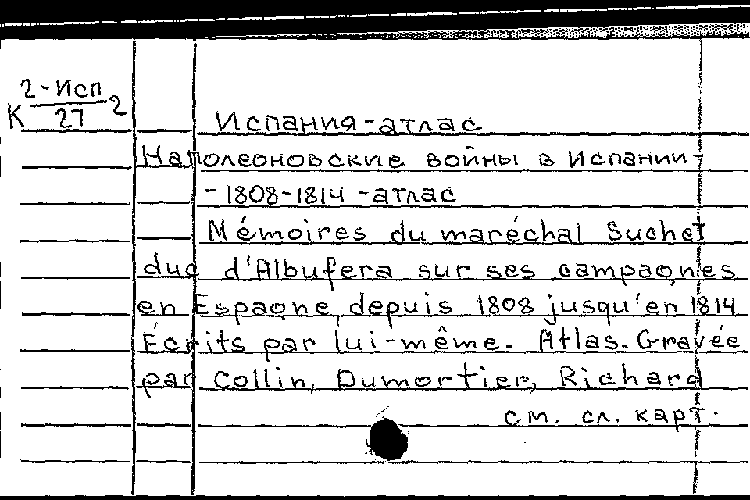 2-Исп
К 27 2
Испания-атлас
Наполеоновские войны в Испании-
- 1808-1814 -атлас
Mémoires du maréchal Suchet
duc d'Albufera sur ses campagnes
en Espagne depuis 1808 jusqu'en 1814
Écrits par lui-même. Atlas. Gravée
par Collin, Dumortier, Richard
см. сл. карт.